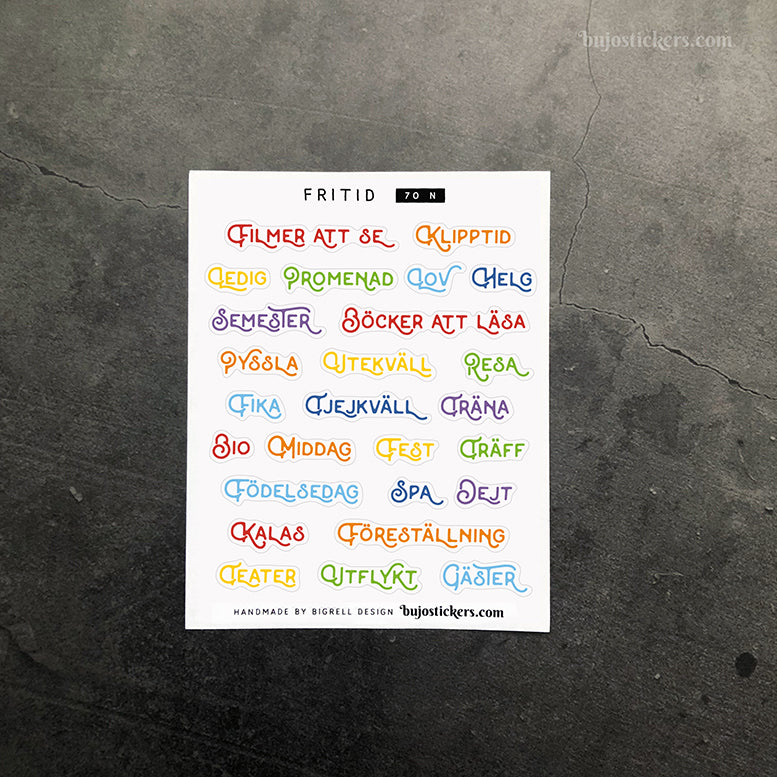 bujostickers.com
FRITID 70 N
FILMER ATT SE KLIPPTID
LEDIG PROMENAD LOV HELG
SEMESTER BÖCKER ATT LÄSA
PYSSLA UTEKVÄLL RESA
FIKA TJEJKVÄLL TRÄNA
BIO MIDDAG FEST TRÄFF
FÖDELSEDAG SPA DEJT
KALAS FÖRESTÄLLNING
TEATER UTFLYKT GÄSTER
HANDMADE BY BIGRELL DESIGN bujostickers.com